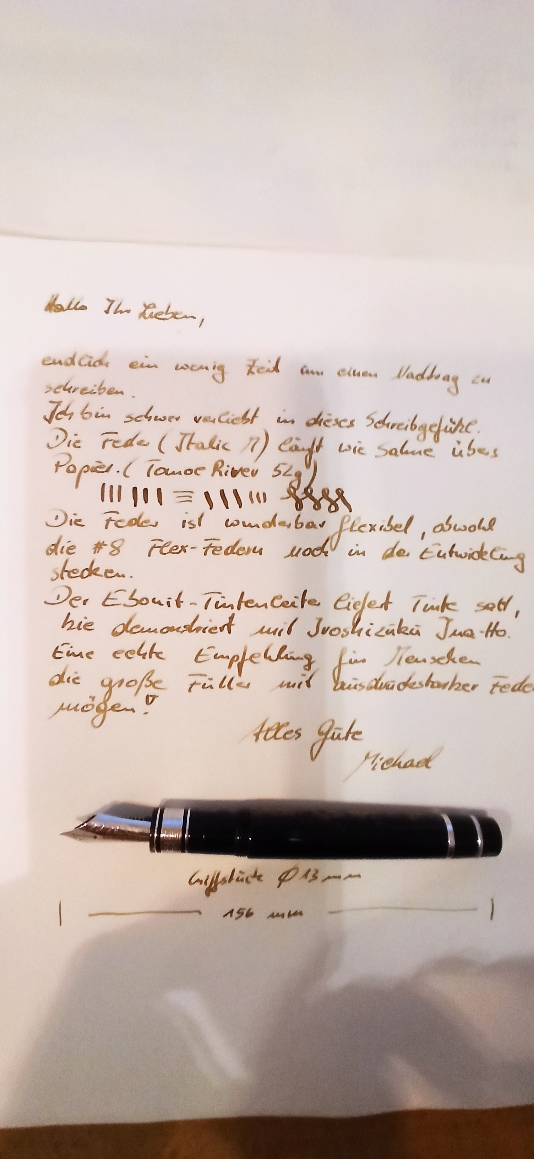 Hallo Ihr Lieben,
endlich ein wenig Zeit um einen Nachtrag zu
schreiben.
Ich bin schwer verliebt in dieses Schreibgefühl.
Die Feder (Italic M) läuft wie Sahne übers
Papier. (Tomoe River 52g)
Die Feder ist wunderbar flexibel, obwohl
die #8 Flex-Federn noch in der Entwicklung
stecken.
Der Ebonit-Tintenleiter liefert Tinte satt,
hie demonstriert mit Iroshizuku Ina-Ho.
Eine echte Empfehlung für Menschen
die große Füller mit ausdrucksstarker Feder
mögen!
Alles Gute
Michael
Griffstück Ø 13 mm
156 mm